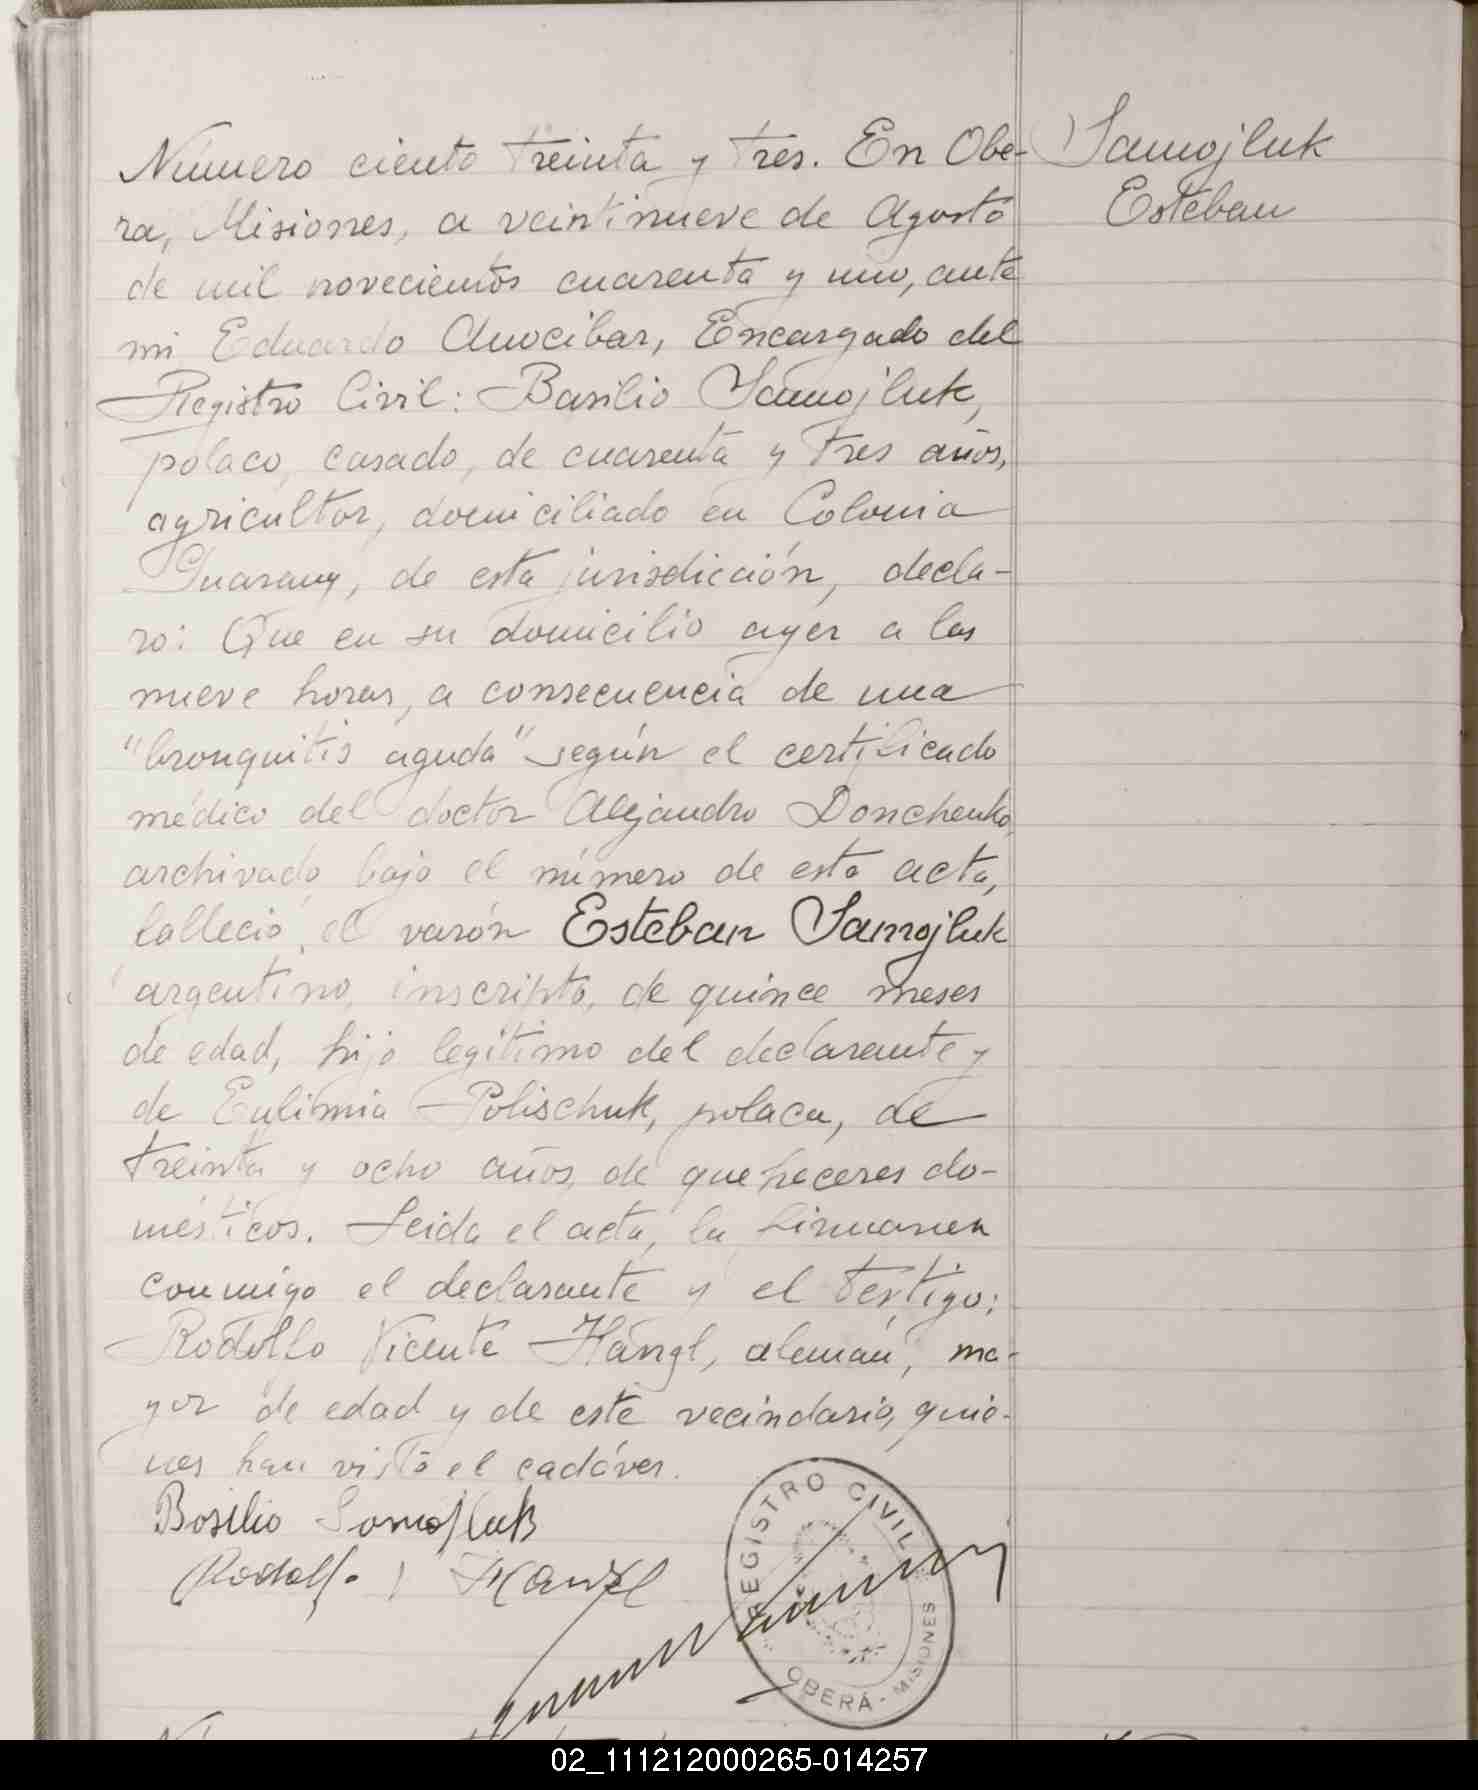 Número ciento treinta y tres. En Obe-
ra, Misiones, a veintinueve de Agosto
de mil novecientos cuarenta y uno, ante
mi Eduardo Anocibar, Encargado del
Registro Civil: Basilio Samojluk,
polaco, casado, de cuarenta y tres años,
agricultor, domiciliado en Colonia
Guarany, de esta jurisdicción, decla-
ro: Que en su domicilio ayer a las
nueve horas, a consecuencia de una
"bronquitis aguda" según el certificado
médico del doctor Alejandro Donchenko,
archivado bajo el número de esta acta,
falleció el varón Esteban Samojluk
argentino, inscripto, de quince meses
de edad, hijo legítimo del declarante y
de Eufimia Polischuk, polaca, de
treinta y ocho años, de quehaceres do-
mésticos. Leida el acta, la firmaron
conmigo el declarante y el testigo:
Rodolfo Vicente Hängl, alemán, ma-
yor de edad y de este vecindario, quie-
nes han visto el cadáver.
Bosilio Somojluk
Rodolfo Hanzl
REGISTRO CIVIL
OBERÁ - MISIONES
Samojluk
Esteban
02_111212000265-014257